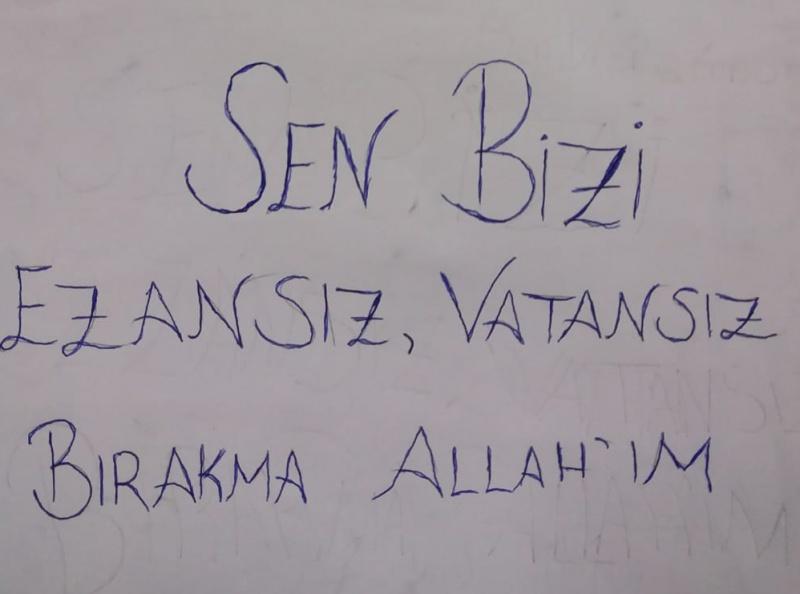 SEN BİZİ
EZANSIZ, VATANSIZ
BIRAKMA ALLAH'IM